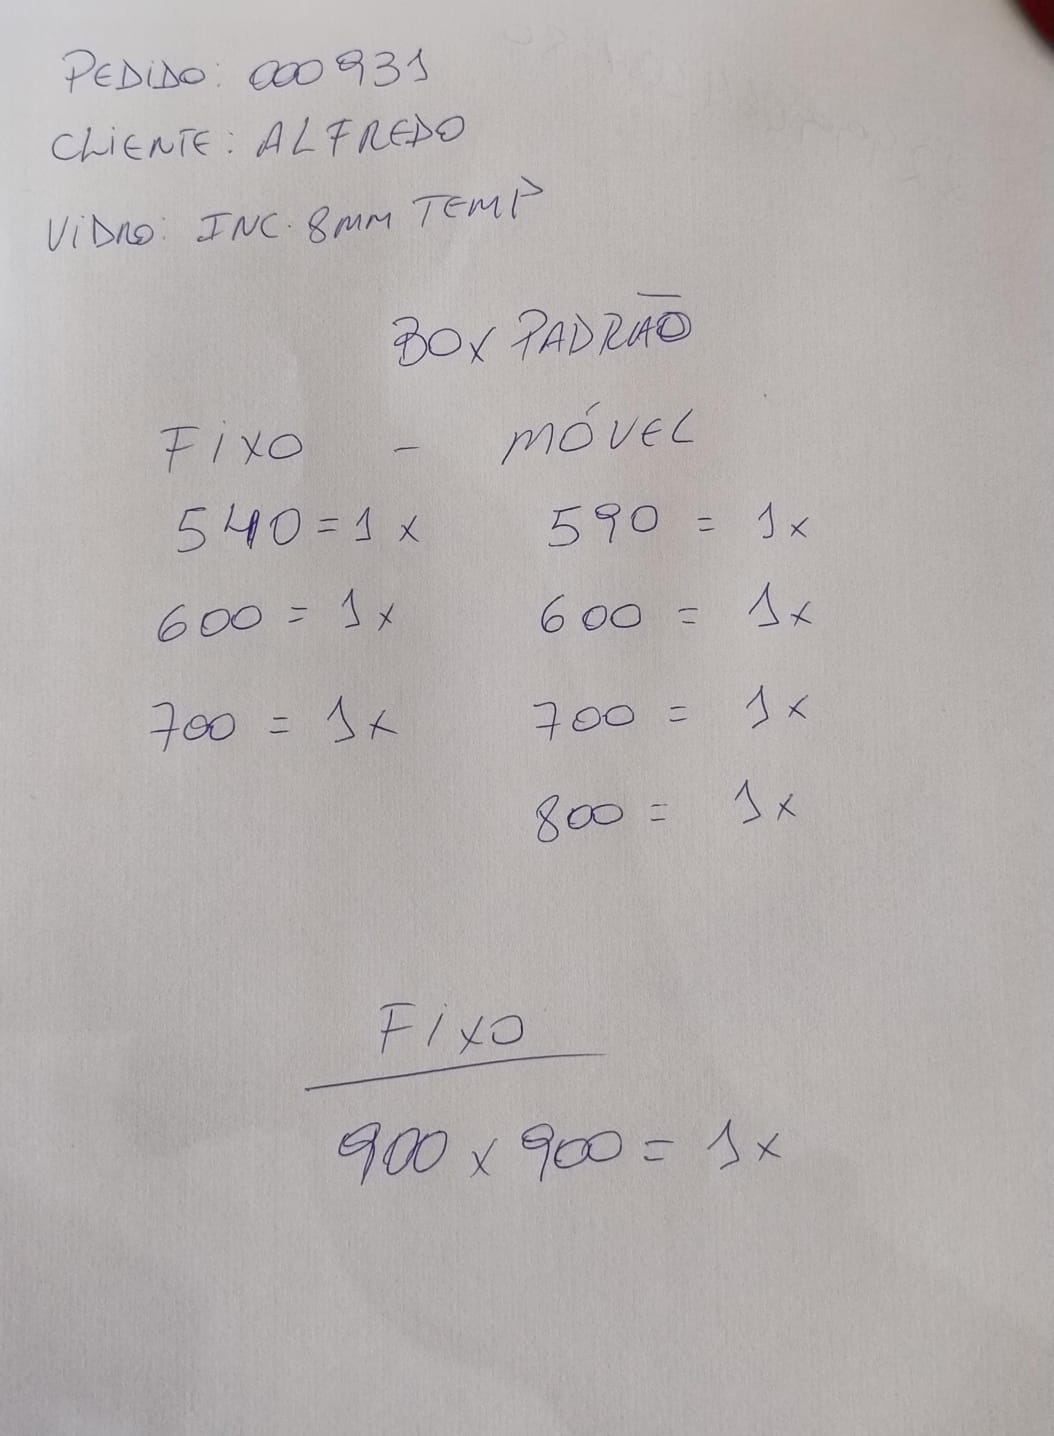 PEDIDO: 000931
CLIENTE: ALFREDO
VIDRO: INC. 8MM TEMP
BOX PADRÃO
FIXO - MÓVEL
540 = 1x 590 = 1x
600 = 1x 600 = 1x
700 = 1x 700 = 1x
800 = 1x
FIXO
900 x 900 = 1x